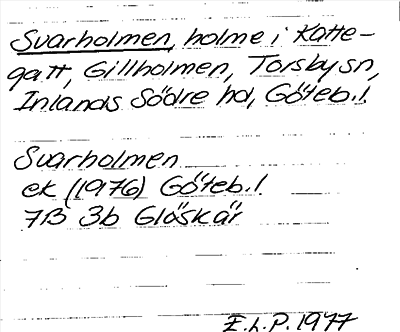 Svarholmen, holme i Katte-
gatt, Gillholmen, Torsby sn,
Inlands Södre hd, Göteb.l.
Svarholmen
ek (1976) Göteb.l
7B 3b Glöskär
E.L.P. 1977